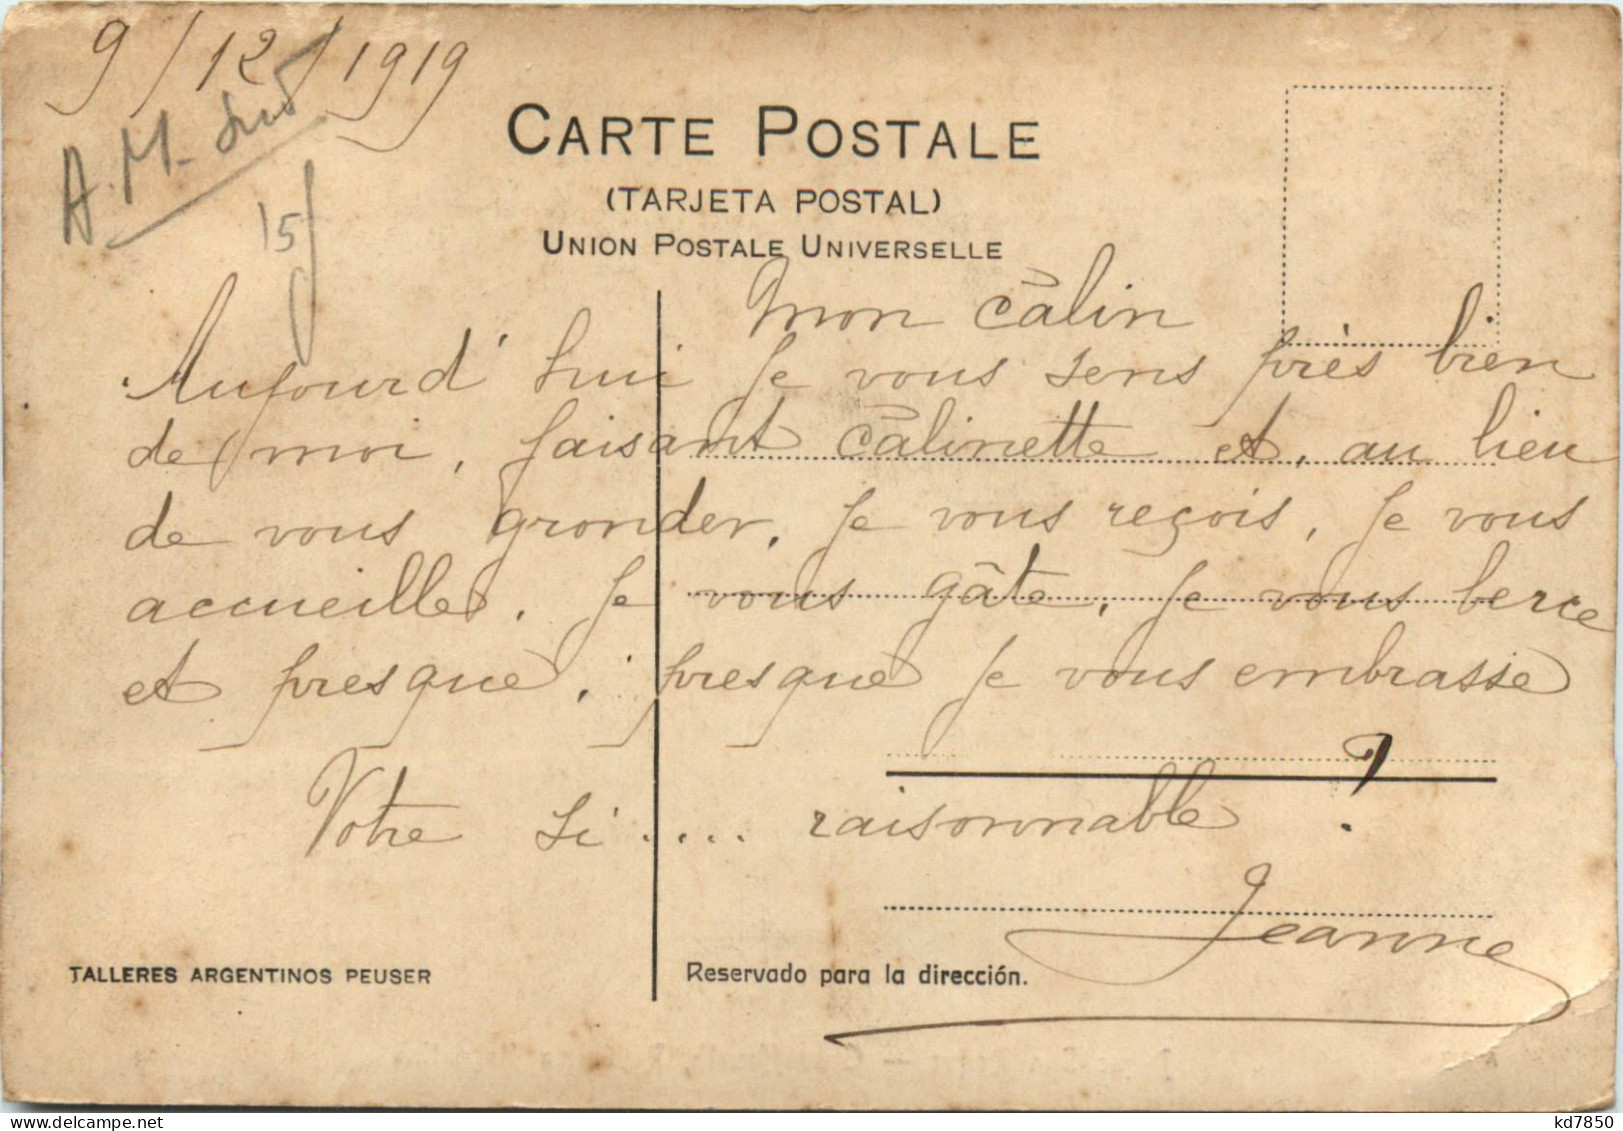 9/12/1919
A.M. Sud
15/
CARTE POSTALE
(TARJETA POSTAL)
UNION POSTALE UNIVERSELLE
Mon câlin
Aujourd'hui je vous sens près bien
de moi, faisant câlinette et, au lieu
de vous gronder, je vous reçois, je vous
accueille, je vous gâte, je vous berce
et presque, presque je vous embrasse
Votre si .... raisonnable ?
Jeanne
TALLERES ARGENTINOS PEUSER
Reservado para la dirección.
kd7850